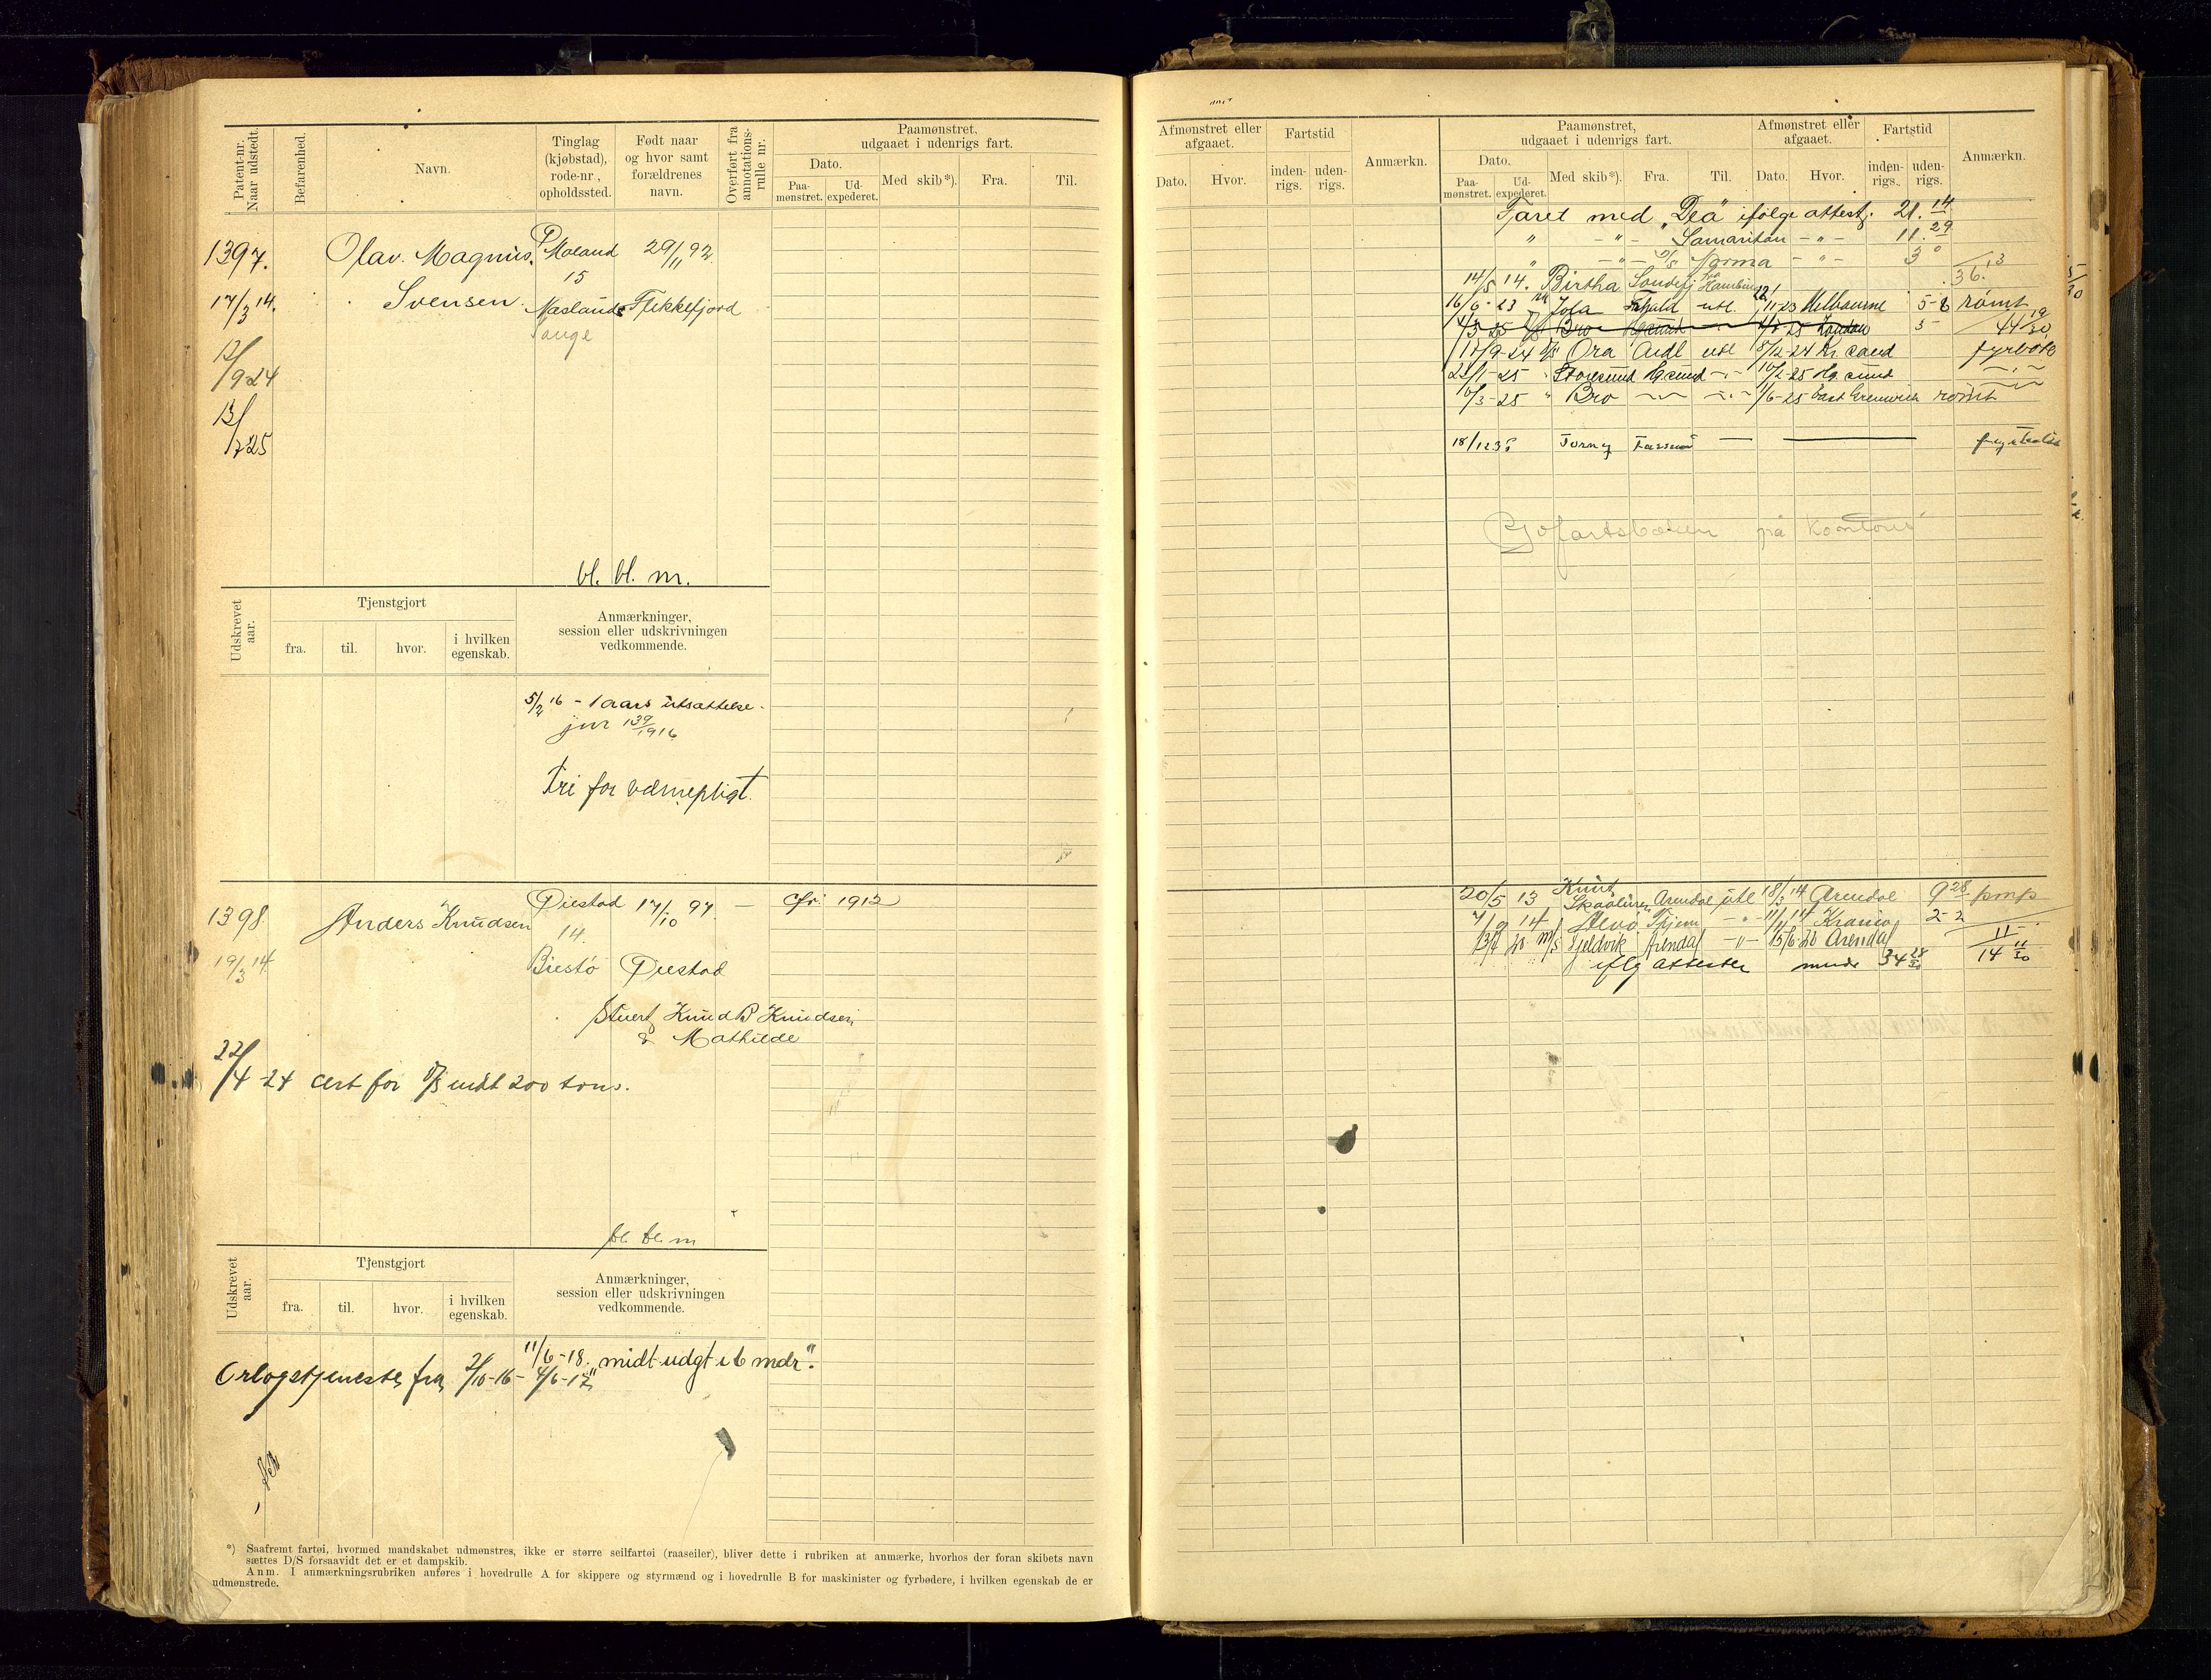 Patent-nr.
Naar udstedt.
Befarenhed.
Navn.
Tinglag
(kjøbstad),
rode-nr.,
opholdssted.
Født naar
og hvor samt
forældrenes
navn.
Overført fra
annotations-
rulle nr.
Paamønstret,
udgaaet i udenrigs fart.
Dato.
Paa-
mønstret.
Ud-
expederet.
Med skib*).
Fra.
Til.
1397.
Olav Magnus
Moland
29/11 92
15
17/3 14.
Svensen
Flekkefjord
12/9 24
13/7 25
bl. bl. m.
Udskrevet
aar.
Tjenstgjort
fra.
til.
hvor.
i hvilken
egenskab.
Anmærkninger,
session eller udskrivningen
vedkommende.
5/2 16 - 1 aars utsættelse
jnr 139/1916
Fri for værnepligt.
1398.
Anders Knudsen
Øiestad
17/10 97
—
Cfr. 1912
14
19/3 14.
Biestø
Øiestad
Stuert Knud B Knudsen
& Mathilde
22/4 24 cert for D/S indt 200 tons.
bl. bl. m
Udskrevet
aar.
Tjenstgjort
fra.
til.
hvor.
i hvilken
egenskab.
Anmærkninger,
session eller udskrivningen
vedkommende.
11/6-18. "midt. udgt i 6 mdr".
Orlogstjeneste fra 2/10-16 - 4/6-17
*) Saafremt fartøi, hvormed mandskabet udmønstres, ikke er større seilfartøi (raaseiler), bliver dette i rubriken at anmærke, hvorhos der foran skibets navn
sættes D/S forsaavidt det er et dampskib.
Anm. I anmærkningsrubriken anføres i hovedrulle A for skippere og styrmænd og i hovedrulle B for maskinister og fyrbødere, i hvilken egenskab de er
udmønstrede.
Afmønstret eller
afgaaet.
Dato.
Hvor.
Fartstid
inden-
rigs.
uden-
rigs.
Anmærkn.
Paamønstret,
udgaaet i udenrigs fart.
Dato.
Paa-
mønstret.
Ud-
expederet.
Med skib*).
Fra.
Til.
Afmønstret eller
afgaaet.
Dato.
Hvor.
Fartstid
inden-
rigs.
uden-
rigs.
Anmærkn.
Faret med "Dea" ifølge attest. 21. 14
" - " - Samaritan - " - 11. 29
" - " - D/S Norma - " - 3
14/5 14. Birtha Sandefj Hamburg 36.
16/6-23 Jola utl. 11-23 Melbourne 5-8 rømt
Bro London 44 19/30
12/9-24 D/S Ora Ardl utl 8/12-24 Kr sand fyrbøte
1-25 " Storesund Hgsund -"- 10/2-25 Hg sund
3-25 " Bro 1/6-25 East Greenwich rømt
18/12 35 Torny
Sjofartsboken på Kontoret
20/5 13 Knut Skaaluren Arendal utl 18/3 14 Arendal 9 28
7/9 14 - " - 11/11 14 Krania 2-2
13/4 20 M/S Gjeldvik Arendal - " - 15/6-20 Arendal 11
iflg attester mndr 34 28/30 14 11/30